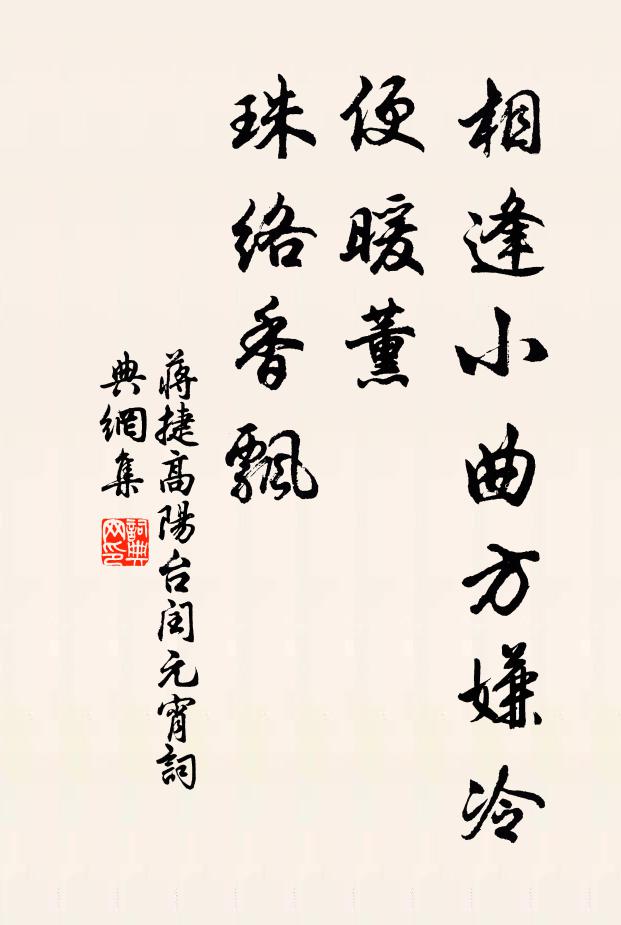 相逢小曲方嫌冷
便暖薰
珠络香飘
蒋捷高陽台闰元宵詞
典網集
詞典
网印